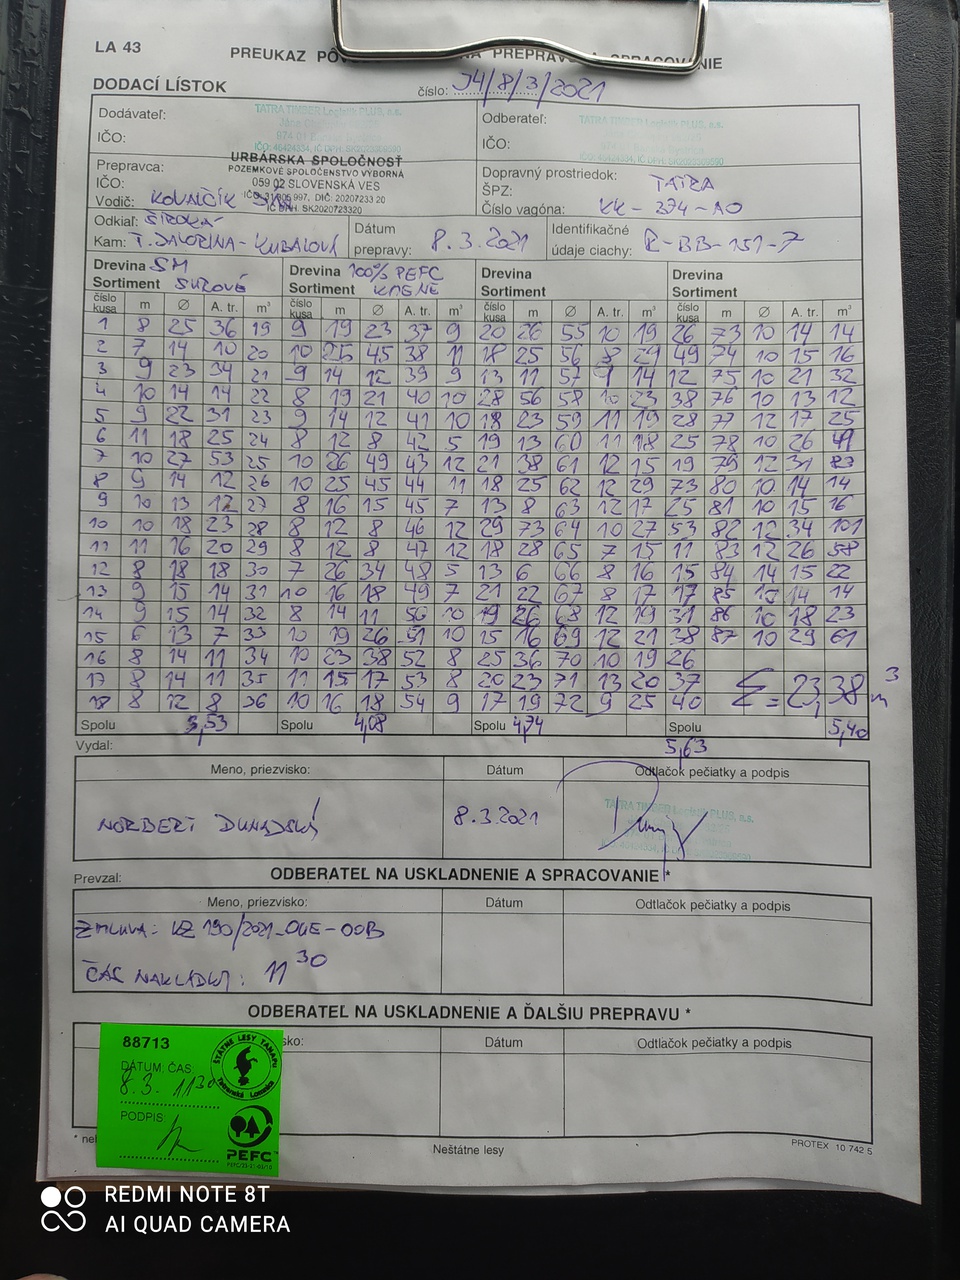 LA 43
PREUKAZ PÔV NA PREPRAVU A SPRACOVANIE
DODACÍ LÍSTOK
číslo: J4/8/3/2021
Dodávateľ:
TATRA TIMBER Logistik PLUS, a.s.
IČO:
Odberateľ:
TATRA TIMBER Logistik PLUS, a.s.
IČO:
Prepravca:
URBÁRSKA SPOLOČNOSŤ
POZEMKOVÉ SPOLOČENSTVO VÝBORNÁ
059 02 SLOVENSKÁ VES
IČO:
Vodič: KOVALČÍK
Dopravný prostriedok: TATRA
ŠPZ:
Číslo vagóna: KK-374-AO
Odkiaľ: ŠIROKÁ
Kam:
Dátum
prepravy: 8.3.2021
Identifikačné
údaje ciachy: R-BB-151-7
Drevina SM
Sortiment SUROVÉ
Drevina 100% PEFC
Sortiment KMENE
Drevina
Sortiment
Drevina
Sortiment
číslo kusa m Ø A. tr. m³ číslo kusa m Ø A. tr. m³ číslo kusa m Ø A. tr. m³ číslo kusa m Ø A. tr. m³
1 8 25 36 19 9 19 23 37 9 20 26 55 10 19 26 73 10 14 14
2 7 14 10 20 10 25 45 38 11 18 25 56 8 29 49 74 10 15 16
3 9 23 34 21 9 14 12 39 9 13 11 57 9 14 12 75 10 21 32
4 10 14 14 22 8 19 21 40 10 28 56 58 10 23 38 76 10 13 12
5 9 22 31 23 9 14 12 41 10 18 23 59 11 19 28 77 12 17 25
6 11 18 25 24 8 12 8 42 5 19 13 60 11 18 25 78 10 26 49
7 10 27 53 25 10 26 49 43 12 21 38 61 12 15 19 79 12 31 83
8 9 14 12 26 10 25 45 44 11 18 25 62 12 29 73 80 10 14 14
9 10 13 12 27 8 16 15 45 7 13 8 63 12 17 25 81 10 15 16
10 10 18 23 28 8 12 8 46 12 29 73 64 10 27 53 82 12 34 101
11 11 16 20 29 8 12 8 47 12 18 28 65 7 15 11 83 12 26 58
12 8 18 18 30 7 26 34 48 5 13 6 66 8 16 15 84 14 15 22
13 9 15 14 31 10 16 18 49 7 21 22 67 8 17 17 85 10 14 14
14 9 15 14 32 8 14 11 50 10 19 26 68 12 19 31 86 10 18 23
15 6 13 7 33 10 19 26 51 10 15 16 69 12 21 38 87 10 29 61
16 8 14 11 34 10 23 38 52 8 25 36 70 10 19 26
17 8 14 11 35 11 15 17 53 8 20 23 71 13 20 37
18 8 12 8 36 10 16 18 54 9 17 19 72 9 25 40
Σ = 23,38 m³
Spolu 3,53 Spolu 4,08 Spolu 4,74 Spolu 5,63 5,40
Vydal:
Meno, priezvisko: Dátum Odtlačok pečiatky a podpis
NORBERT DUNAJSKÝ 8.3.2021
TATRA TIMBER Logistik PLUS, a.s.
Prevzal:
ODBERATEĽ NA USKLADNENIE A SPRACOVANIE *
Meno, priezvisko: Dátum Odtlačok pečiatky a podpis
ZMLUVA: KZ 190/2021-04E-00B
ČAS NAKLÁDKY: 11 30
ODBERATEĽ NA USKLADNENIE A ĎALŠIU PREPRAVU *
sko: Dátum Odtlačok pečiatky a podpis
88713
DÁTUM, ČAS:
8.3. 11 30
PODPIS:
ŠTÁTNE LESY TANAPU
Tatranská Lomnica
PEFC
* neh
Neštátne lesy
PROTEX 10 742 5
REDMI NOTE 8T
AI QUAD CAMERA